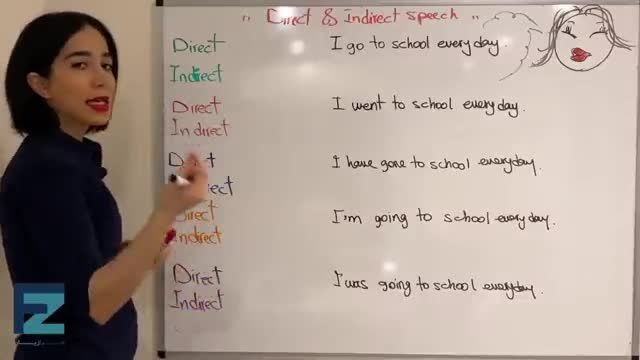 " Direct & Indirect speech "
Direct I go to school everyday.
Indirect
Direct I went to school everyday.
Indirect
Direct I have gone to school everyday.
Direct I'm going to school everyday.
Indirect
Direct I was going to school everyday.
Indirect
FZ